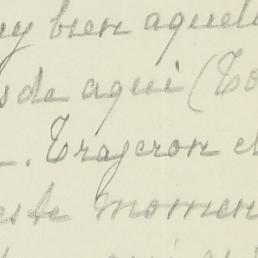 uy bien aquell
s de aqui (To
. Trajeron el
este momen